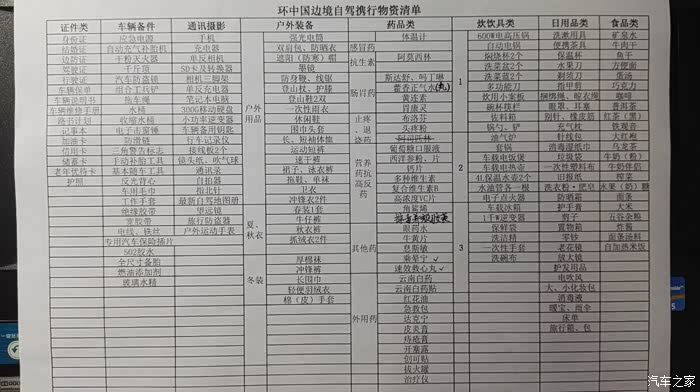 环中国边境自驾携行物资清单
证件类 车辆备件 通讯摄影 户外装备 药品类 炊饮具类 日用品类 食品类
身份证 应急电源 手机 强光电筒 体温计 600W电高压锅 洗漱用具 矿泉水
结婚证 自动充气补胎机 充电器 双肩包、防晒衣 感冒药 自动电锅 便携茶具 牛肉干
边防证 干粉灭火器 单反相机 遮阳（防寒）帽 抗生素 阿莫西林 焖烧杯2个 保温杯 鱼干
驾驶证 千斤顶 SD卡及转换器 墨镜 洗菜盆2个 水果刀 方便面
行驶证 汽车防盗锁 相机三脚架 防身鞭、线锯 肠胃药 斯达舒、吗丁啉 洗菜篮2个 剃须刀 蛋汤
车辆保单 组合工兵铲 单反充电器 登山杖、护膝 藿香正气水(丸) 1 多功能刀 指甲剪 巧克力
车辆说明书 拖车绳 笔记本电脑 户外用品 登山鞋2双 黄连素 炊用小案板 捆绑绳、晾衣绳 咖啡
车辆维修手册 水桶 300G移动硬盘 一次性雨衣 胃康灵 碗杯筷杓 眼罩、耳塞 普洱茶
路书计划 收缩水桶 小功率逆变器 休闲鞋 止疼、退烧药 布洛芬 佐料箱 别针、橡皮筋 红茶（黑）
记事本 电子击窗锤 车辆备用钥匙 围巾头套 头疼粉 锅勺、铲 充气枕 铁观音
加油卡 防滑链 行车记录仪 长、短袖体恤 油气炉 针线包 大红袍
信用卡 三角警告标志 接线板2个 运动短裤 营养药抗高反药 葡萄糖口服液 套锅 消毒湿纸巾 乌龙茶
储蓄卡 手动补胎工具 镜头纸、吹气球 速干裤 西洋参粉、片 2 车载电饭煲 垃圾袋 牛奶（粉）
老年优待卡 基本随车工具 通讯录 裙子、泳衣裤 钙片 车载电热壶 一次性塑料布 牛奶伴侣
护照 反光背心 自拍器 拖鞋、单袜 多种维生素 4L保温水壶2个 旧报纸 燕麦
车用毛巾 指北针 卫衣 复合维生素B 水油管各一根 洗衣粉・肥皂 水果（奶）糖
工作手套 最新自驾地图册 冲锋衣2件 高浓度VC片 电子点火器 防晒霜 面条
绝缘胶带 望远镜 夏、秋衣 春装1套 角鲨烯 车载冰箱 护手膏 大米
宽胶带 旅行防盗器 牛仔裤 1千W逆变器 剪子 五谷杂粮
电线、铁丝 户外运动手表 秋衣裤 其他药 眼药水 保鲜袋 置物箱 榨菜
专用汽车保险插片 抓绒衣2件 牛黄片 3 洗洁精 零钞 面条汤料
502胶水 息斯敏 一次性手套 老花镜 自加热米饭
全尺寸备胎 冬装 厚棉袜 乘晕宁✓ 洗碗布 放大镜
燃油添加剂 冲锋裤 速效救心丸✓ 护发用品
玻璃水精 长围巾 云南白药 电吹风
轻便羽绒衣 外用药 云南白药贴 大、小化妆包
棉（皮）手套 红花油 消毒液
急救包 暖宝、雨伞
达克宁 床单
皮炎膏 旅行箱、包
痔疮膏
开塞露
创可贴
拔火罐
治疗仪
汽车之家